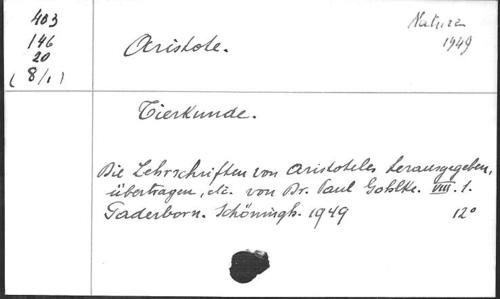 403
146
20
(8/1)
Natura
1949
Aristote.
Tierkunde.
Die Lehrschriften von Aristoteles herausgegeben,
übertragen, etc. von Dr. Paul Gohlke. VIII. 1.
Paderborn. Schöningh. 1949 12°